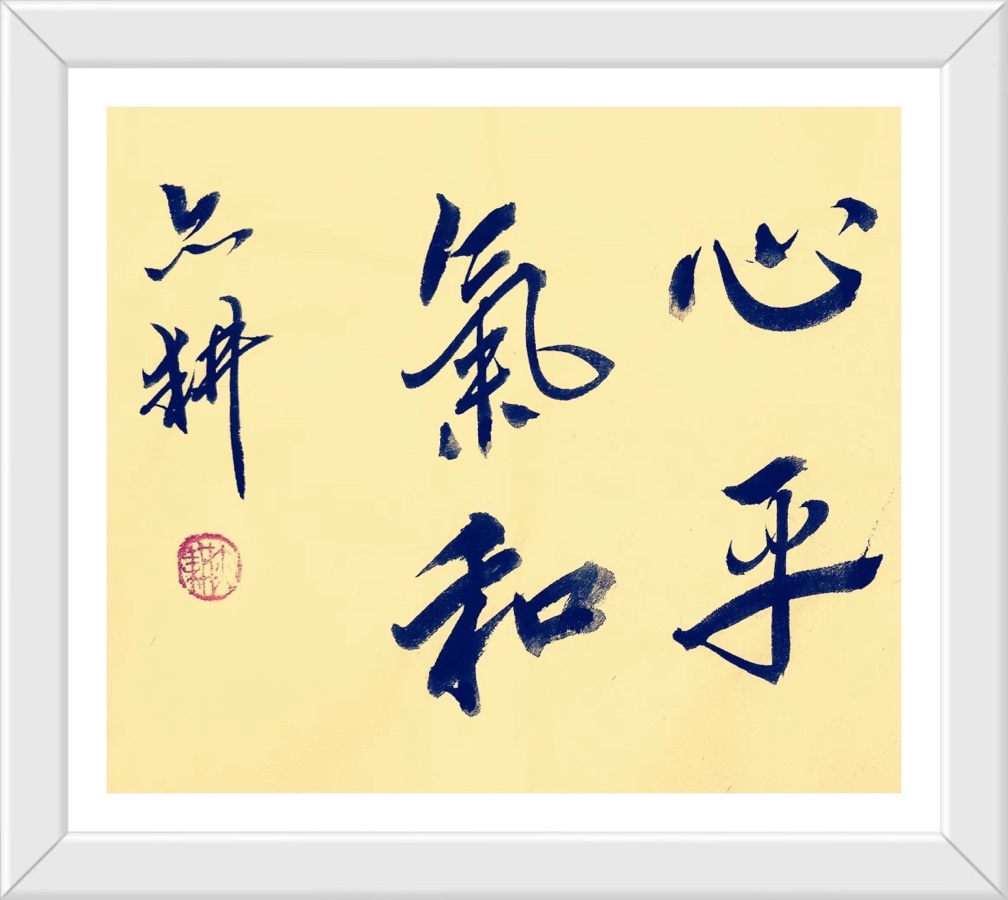 心平
氣和
耕